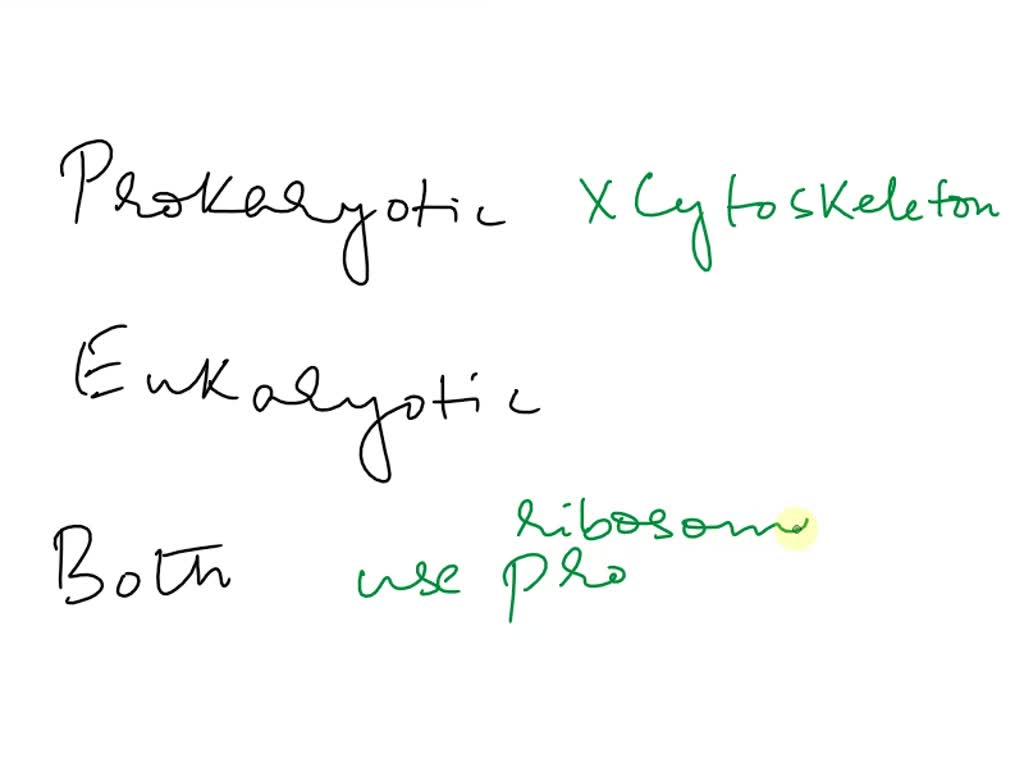 Prokaryotic X Cytoskeleton
Eukaryotic
ribosom
Both use pro